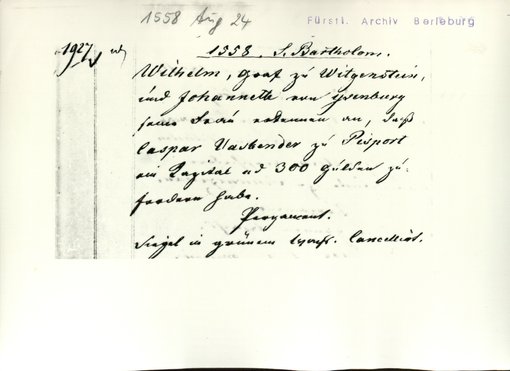 1558 Aug 24
Fürstl. Archiv Berleburg
1927
1558. S. Bartholom.
Wilhelm, Graf zu Witgenstein,
und Johannette von Ysenburg
seine Frau erkennen an, daß
Caspar zu Pisport
ein Kapital ad 300 Gulden zu
fordern habe.
Pergament.
Siegel in grünem Cancellirt.